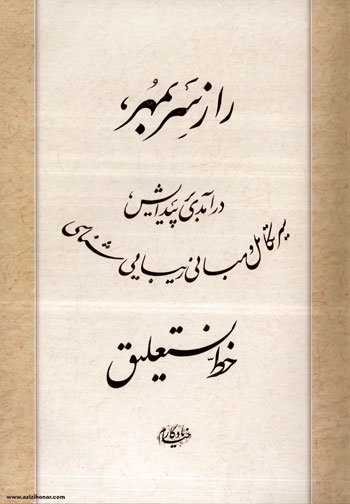 راز سر بمهر،
درآمدی بر پیدایش
سیر تکامل و مبانی زیبایی شناسی
خط نستعلیق
www.azizihonar.com